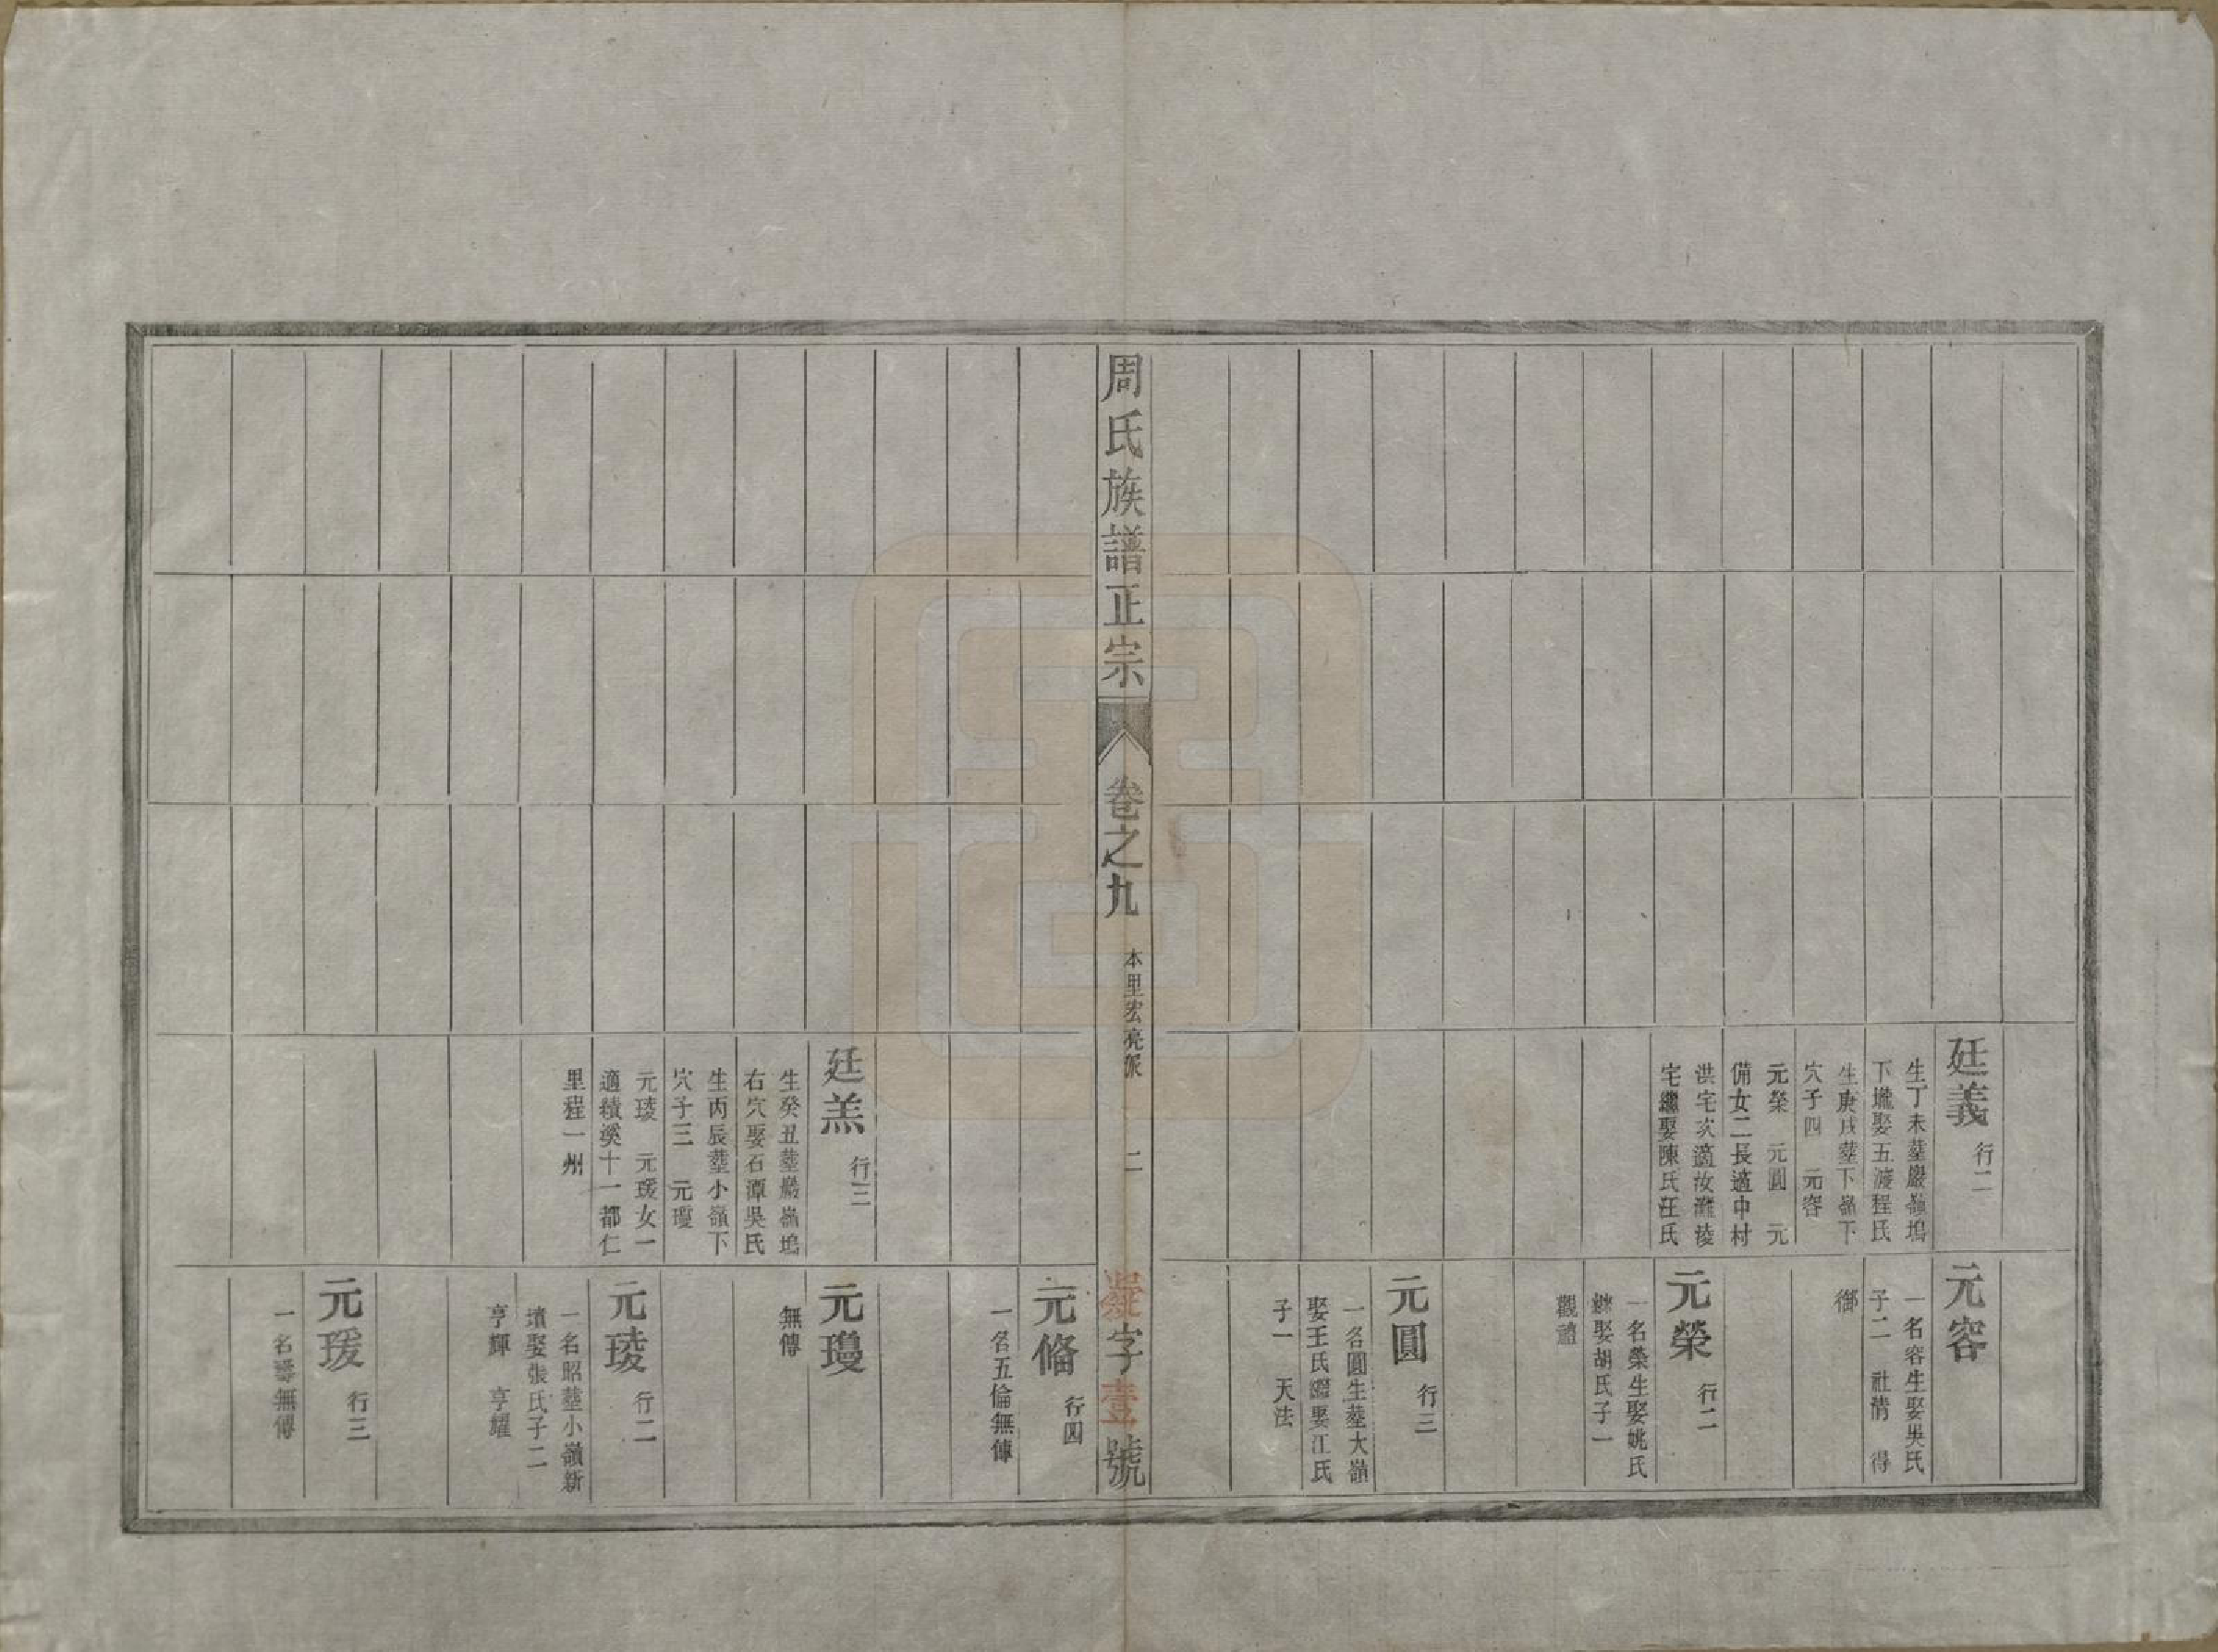 廷義 行二
生丁未塟嚴嶺塢
下壠娶五渡程氏
生庚戌塟下嶺下
穴子四 元容
元榮 元圓 元
備女二長適中村
洪宅次適汝灘淩
宅繼娶陳氏汪氏
元容
一名容生娶吳氏
子二 社倩 得
御
元榮 行二
一名榮生娶姚氏
繼娶胡氏子一
觀禮
元圓 行三
一名圓生塟大嶺
娶王氏繼娶江氏
子一 天法
周氏族譜正宗
卷之九
本里宏亮派
二
凝字壹號
元俻 行四
一名五倫無傳
廷羔 行三
生癸丑塟嚴嶺塢
右穴娶石潭吳氏
生丙辰塟小嶺下
穴子三 元瓊
元琖 元瑗女一
適績溪十一都仁
里程一州
元瓊
無傳
元琖 行二
一名昭塟小嶺新
墳娶張氏子二
亨輝 亨耀
元瑗 行三
一名壽無傳